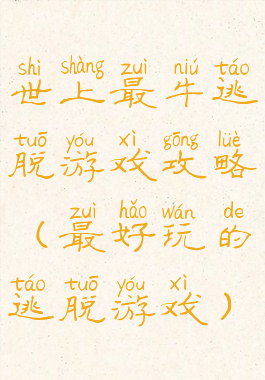 shì shàng zuì niú táo
世上最牛逃
tuō yóu xì gōng lüè
脱游戏攻略
zuì hǎo wán de
（最好玩的
táo tuō yóu xì
逃脱游戏）